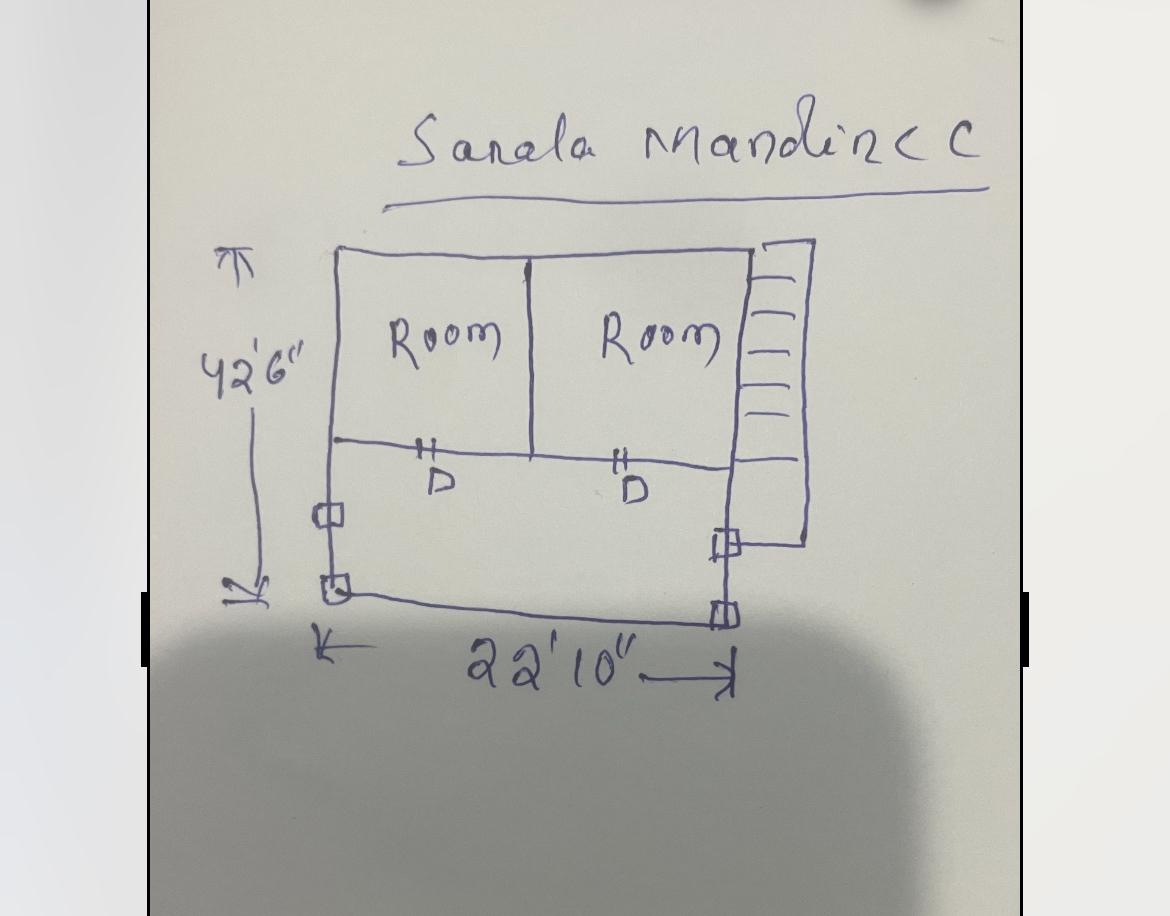 Sarala Mandir CC
Room Room
42'6"
D D
22'10"